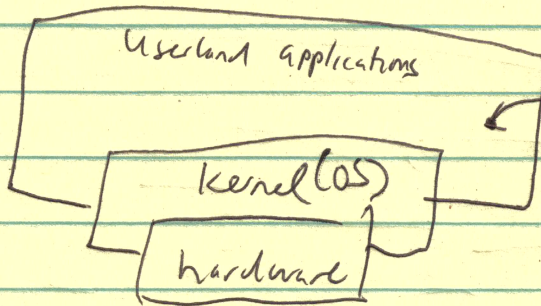 Userland applications
Kernel (OS)
hardware